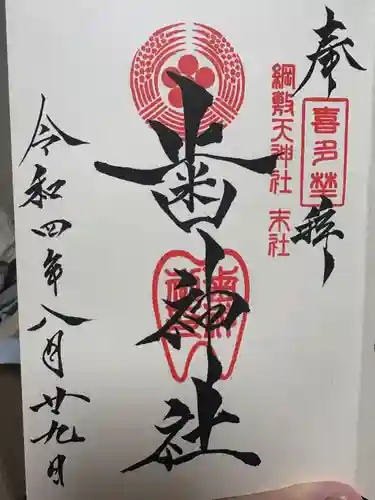 奉拝
喜多埜
綱敷天神社 末社
歯神社
令和四年八月廿九日